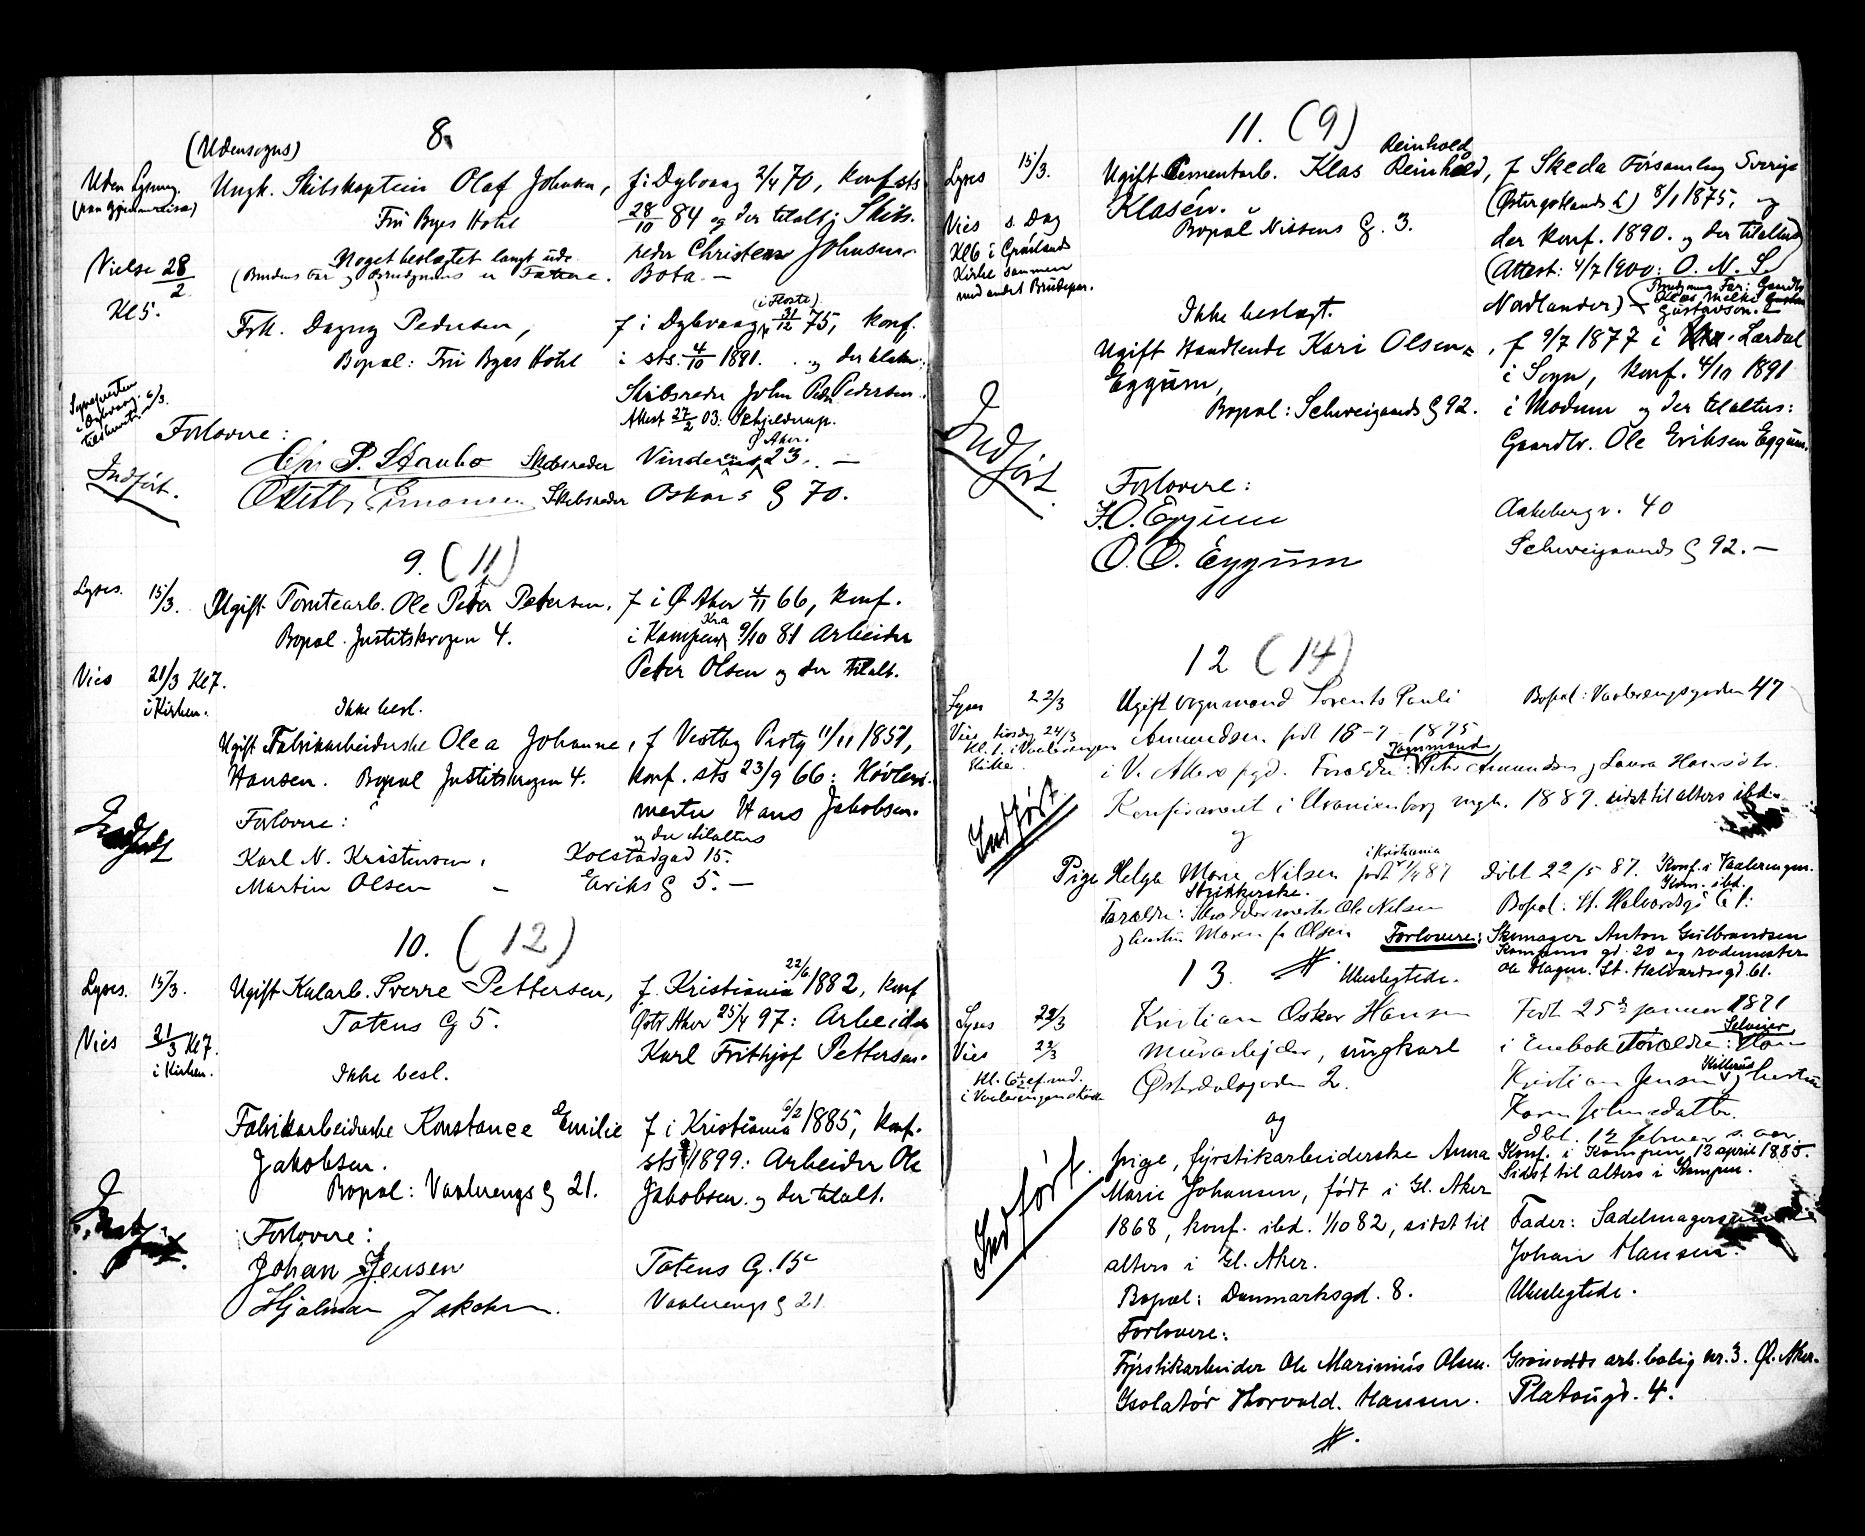 8.
(Udensogns)
Uden Lysning.
Ungk. Skibskaptein Olaf Johnsen,
f. i Dybvaag 2/4 70, konf. sts
Fru Byes Hotel
28/10 84 og der tilalt; Skibs-
reder Christen Johnsen
Vielse 28/2
Kl 5.
Noget beslægtet langt ude.
(Brudens Far og Brudgommens er Fættere.
Bota. —
Frk. Dagny Pedersen,
f i Dybvaag (i Flosta) 31/12 75, konf.
Bopæl: Fru Byes Hotel
i sts. 4/10 1891. og der tilalt:
Skibsreder John Pedersen.
Attest 27/2 03: Schjelderup.
Forlovere:
Chr. P. Staubo Skibsreder
Vinderen 23. — Ø Aker.
Skibsreder Oskars G 70.
Indført.
9. (11)
Lyses. 15/3.
Ugift Tomtearb. Ole Peter Petersen.
f i Ø Aker 4/11 66, konf.
Bopæl. Justitskrogen 4.
i Kampen Kra 9/10 81 Arbeider
Peter Olsen og der tilalt.
Vies 21/3 Kl 7.
i Kirken.
Ikke besl.
Ugift Fabrikarbeiderske Olea Johanne
, f Vestby Prstg 11/11 1851,
Hansen. Bopæl Justitskrogen 4.
konf. sts 23/9 66: Høvler-
mester Hans Jakobsen.
og der tilalters
Forlovere:
Karl N. Kristensen, Kolstadgad 15.
Martin Olsen — Eriks G 5. —
10. (12)
Lyses. 15/3.
Ugift Kularb. Sverre Pettersen,
f. Kristiania 22/6 1882, konf
Totens G 5.
Østr Aker 25/4 97: Arbeider
Karl Frithjof Pettersen.
Vies 21/3 Kl 7.
i Kirken.
Ikke besl.
Fabrikarbeiderske Konstance Emilie
f i Kristiania 6/2 1885, konf.
Jakobsen.
sts 1899: Arbeider Ole
Bopæl: Vaalerengs G 21.
Jakobsen og der tilalt.
Forlovere:
Johan Jensen Totens G. 15
Hjalmar Jakobsen. Vaalerengs G 21
11. (9)
Lyses 15/3.
Ugift Cementarb. Klas Reinhold,
Reinhold
f Skeda Forsamling Sverige
Klasén.
(Østergøtlands L) 8/1 1875, og
Vies s. Dag
Kl 6 i Grønlands
Kirke sammen
med andet Brudepar.
Bopæl Nissens G. 3.
der konf. 1890. og der tilalt
(Attest: 4/7 1900: O. N. S.
Nordlander)
Brudgoms Far: Gaardbr
Gustavson.
Ikke beslægt.
Ugift Handlende Kari Olsen
, f 9/7 1877 i Lærdal
Eggum,
i Sogn, konf. 4/10 1891
Bopæl: Schweigaards G 92.
i Modum og der tilalters:
Gaardbr. Ole Eriksen Eggum.
Indført.
Forlovere:
Aakebergv. 40
O. O. Eggum Schweigaards G 92. —
12 (14)
Lyses 22/3
Ugift vognmand Lorents Pauli
Bopæl: Vaalerengsgaden 47
Vies tirsdag 24/3
i Vaalerengen
Kirke.
Amundsen født 18-9-1875
i V. Akers pgd. Forældre: Tommand Peter Amundsen og Laura
Konfirmeret i Uranienborg mgh. 1889. sidst til alters ibd.
Indført.
og
Pige Helga Marie Nilsen født i Kristiania 87
døbt 22/5 87. Konf. i Vaalerengen.
Kom. ibd.
Strikkerske.
Forældre: Skræddermester Ole Nilsen
Bopæl: St. Halvardsg 61:
og hustru Maren f. Olsen
Forlovere: Skomager Anton Gulbrandsen
Kampens gd. 20 og rodemester
Ole Hagen. St. Halvardsgd 61.
13. Ubeslegtede.
Lyses 22/3
Kristian Oskar Hansen
Født 25de januar 1871
Vies 22/3
Kl. 6½ ef.md.
i Vaalerengens kirke
murarbejder, ungkarl
i Enebak Forældre: Selveier
Østerdalsgaden 2.
Kristian Jensen Killerud og hustru
og
pige, fyrstikarbeiderske Anna
Konf. i Kampen, 12 april 1885.
Sidst til alters i Kampen.
Marie Johansen, født i Gl. Aker
1868, konf. ibd. 1/10 82, sidst til
Fader: Sadelmagersvend
alters i Gl. Aker.
Johan Hansen.
Bopæl: Danmarksgd. 8.
Ubeslegtede.
Indført.
Forlovere:
Fyrstikarbeider Ole Marinius Olsen. Grønvolds arb. bolig nr. 3. Øl. Aker.
Isolatør Thorvald. Hansen. Platougd. 4.